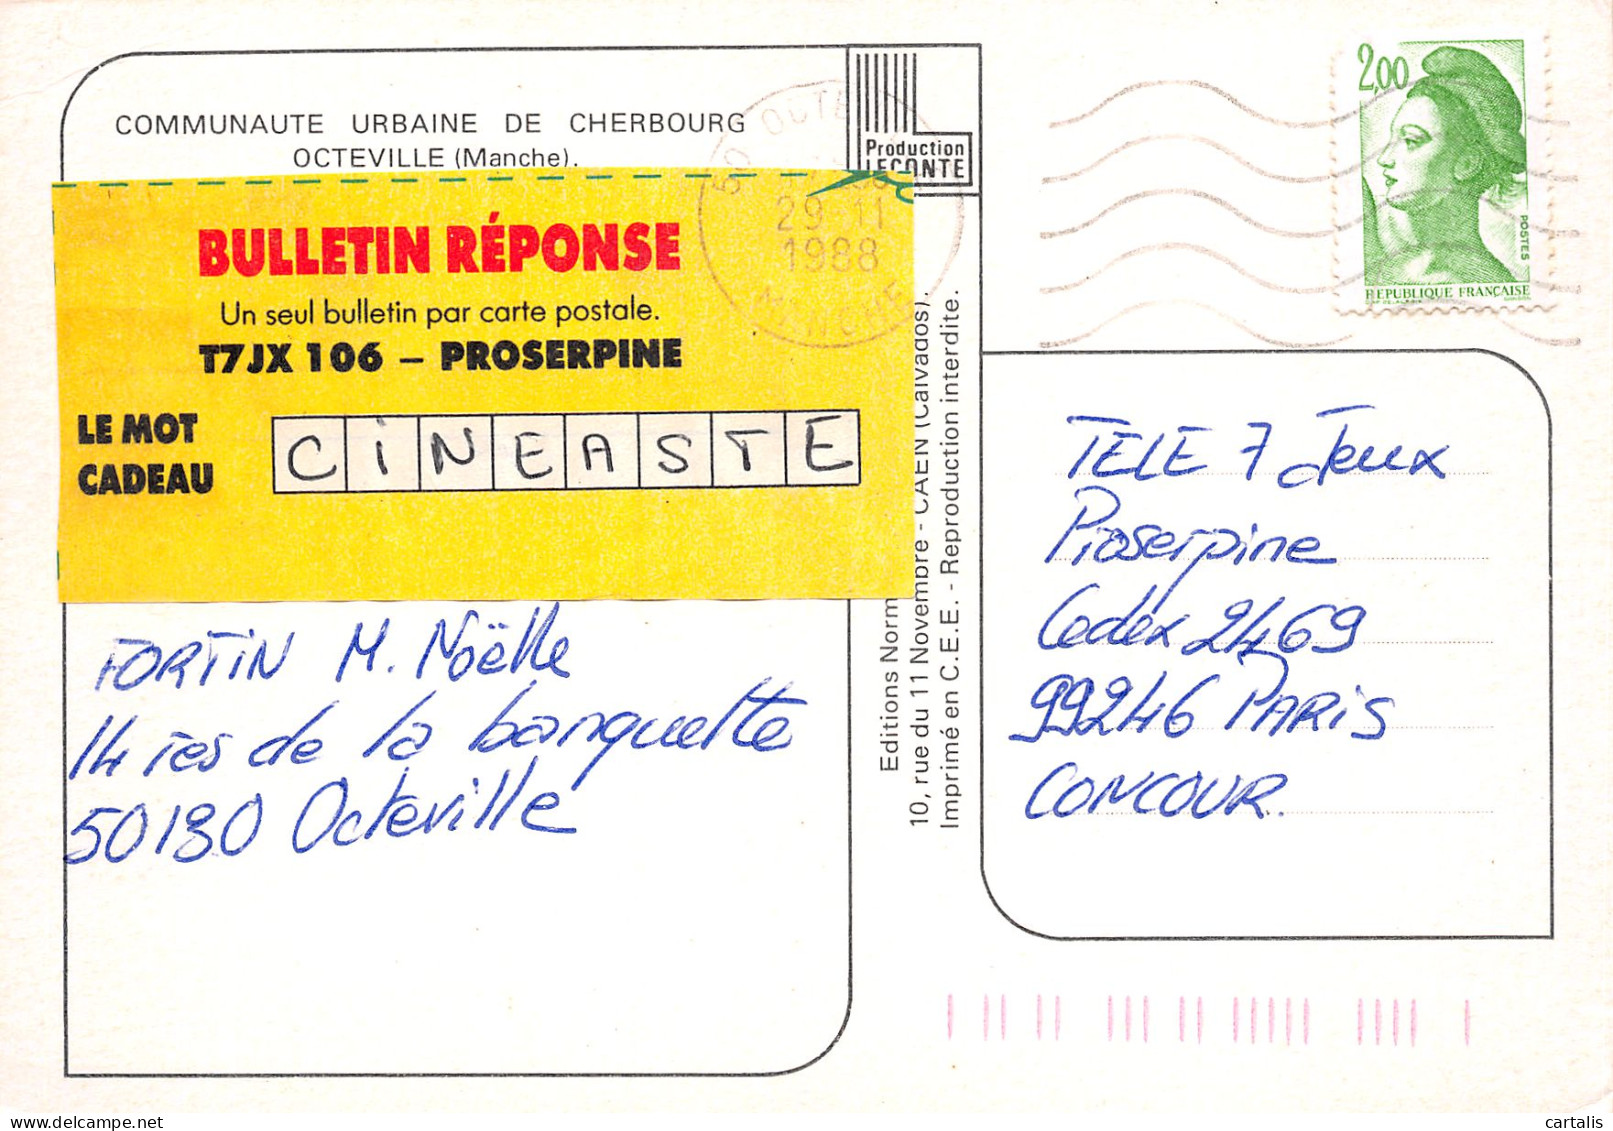 COMMUNAUTE URBAINE DE CHERBOURG
OCTEVILLE (Manche).
Production
LECONTE
29-11
1988
MANCHE
2,00
POSTES
REPUBLIQUE FRANÇAISE
BULLETIN RÉPONSE
Un seul bulletin par carte postale.
T7JX 106 – PROSERPINE
LE MOT
CADEAU
CiNEASTE
FORTIN M. Noëlle
14 res de la banquette
50130 Octeville
Editions Norm
10, rue du 11 Novembre - CAEN (Calvados).
Imprimé en C.E.E. - Reproduction interdite.
TELE 7 Jeux
Proserpine
Cedex 2469
99246 PARiS
CONCOUR.
www.delcampe.net
cartalis